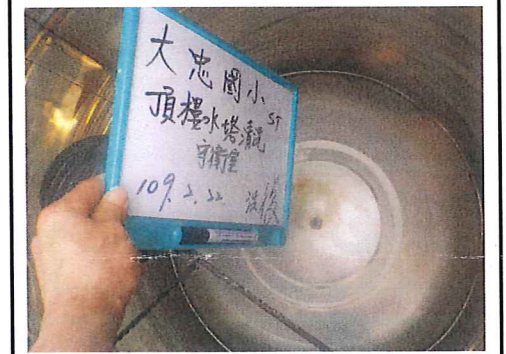 大忠國小
頂樓水塔清洗 ST
守衛室
109.2.22 洗後